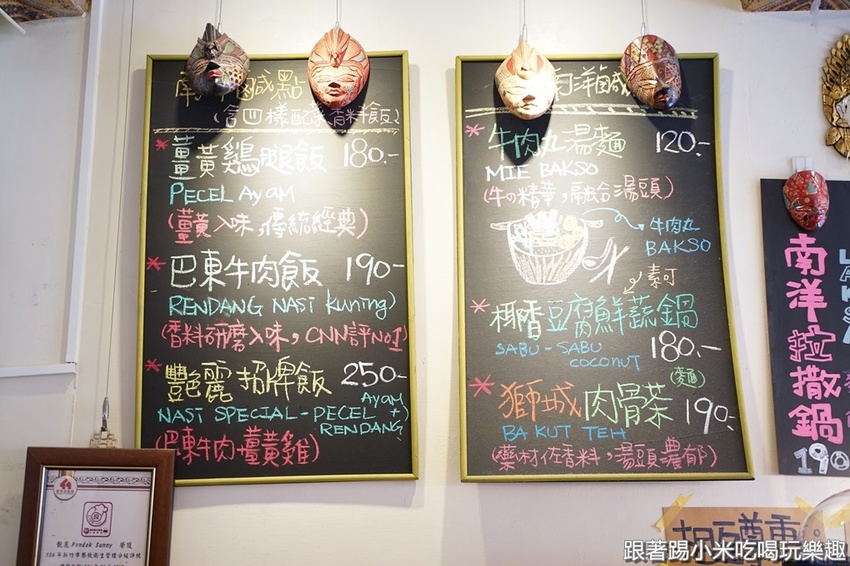 南洋鹹點
(含四樣配菜,香料飯)
*薑黃雞腿飯 180.-
PECEL Ayam
(薑黃入味,傳統經典)
*巴東牛肉飯 190-
RENDANG NASI Kuning)
(香料研磨入味,CNN評No1)
*艷麗招牌飯 250-
NASI SPECIAL-PECEL AYAM +) RENDANG
(巴東牛肉+薑黃雞)
南洋鹹
*牛肉丸湯麵 120.-
MIE BAKSO
(牛の精華,融合湯頭)
牛肉丸
BAKSO
素可
*椰香豆腐鮮蔬鍋
SABU-SABU COCONUT 180.-
(麵)
*獅城肉骨茶 190.-
BA KUT TEH
(藥材佐香料,湯頭濃郁)
南洋拉撒鍋
190
艷麗 Pondok Sunny 榮獲
106年新竹市餐飲衛生管理分級評核
跟著踢小米吃喝玩樂趣